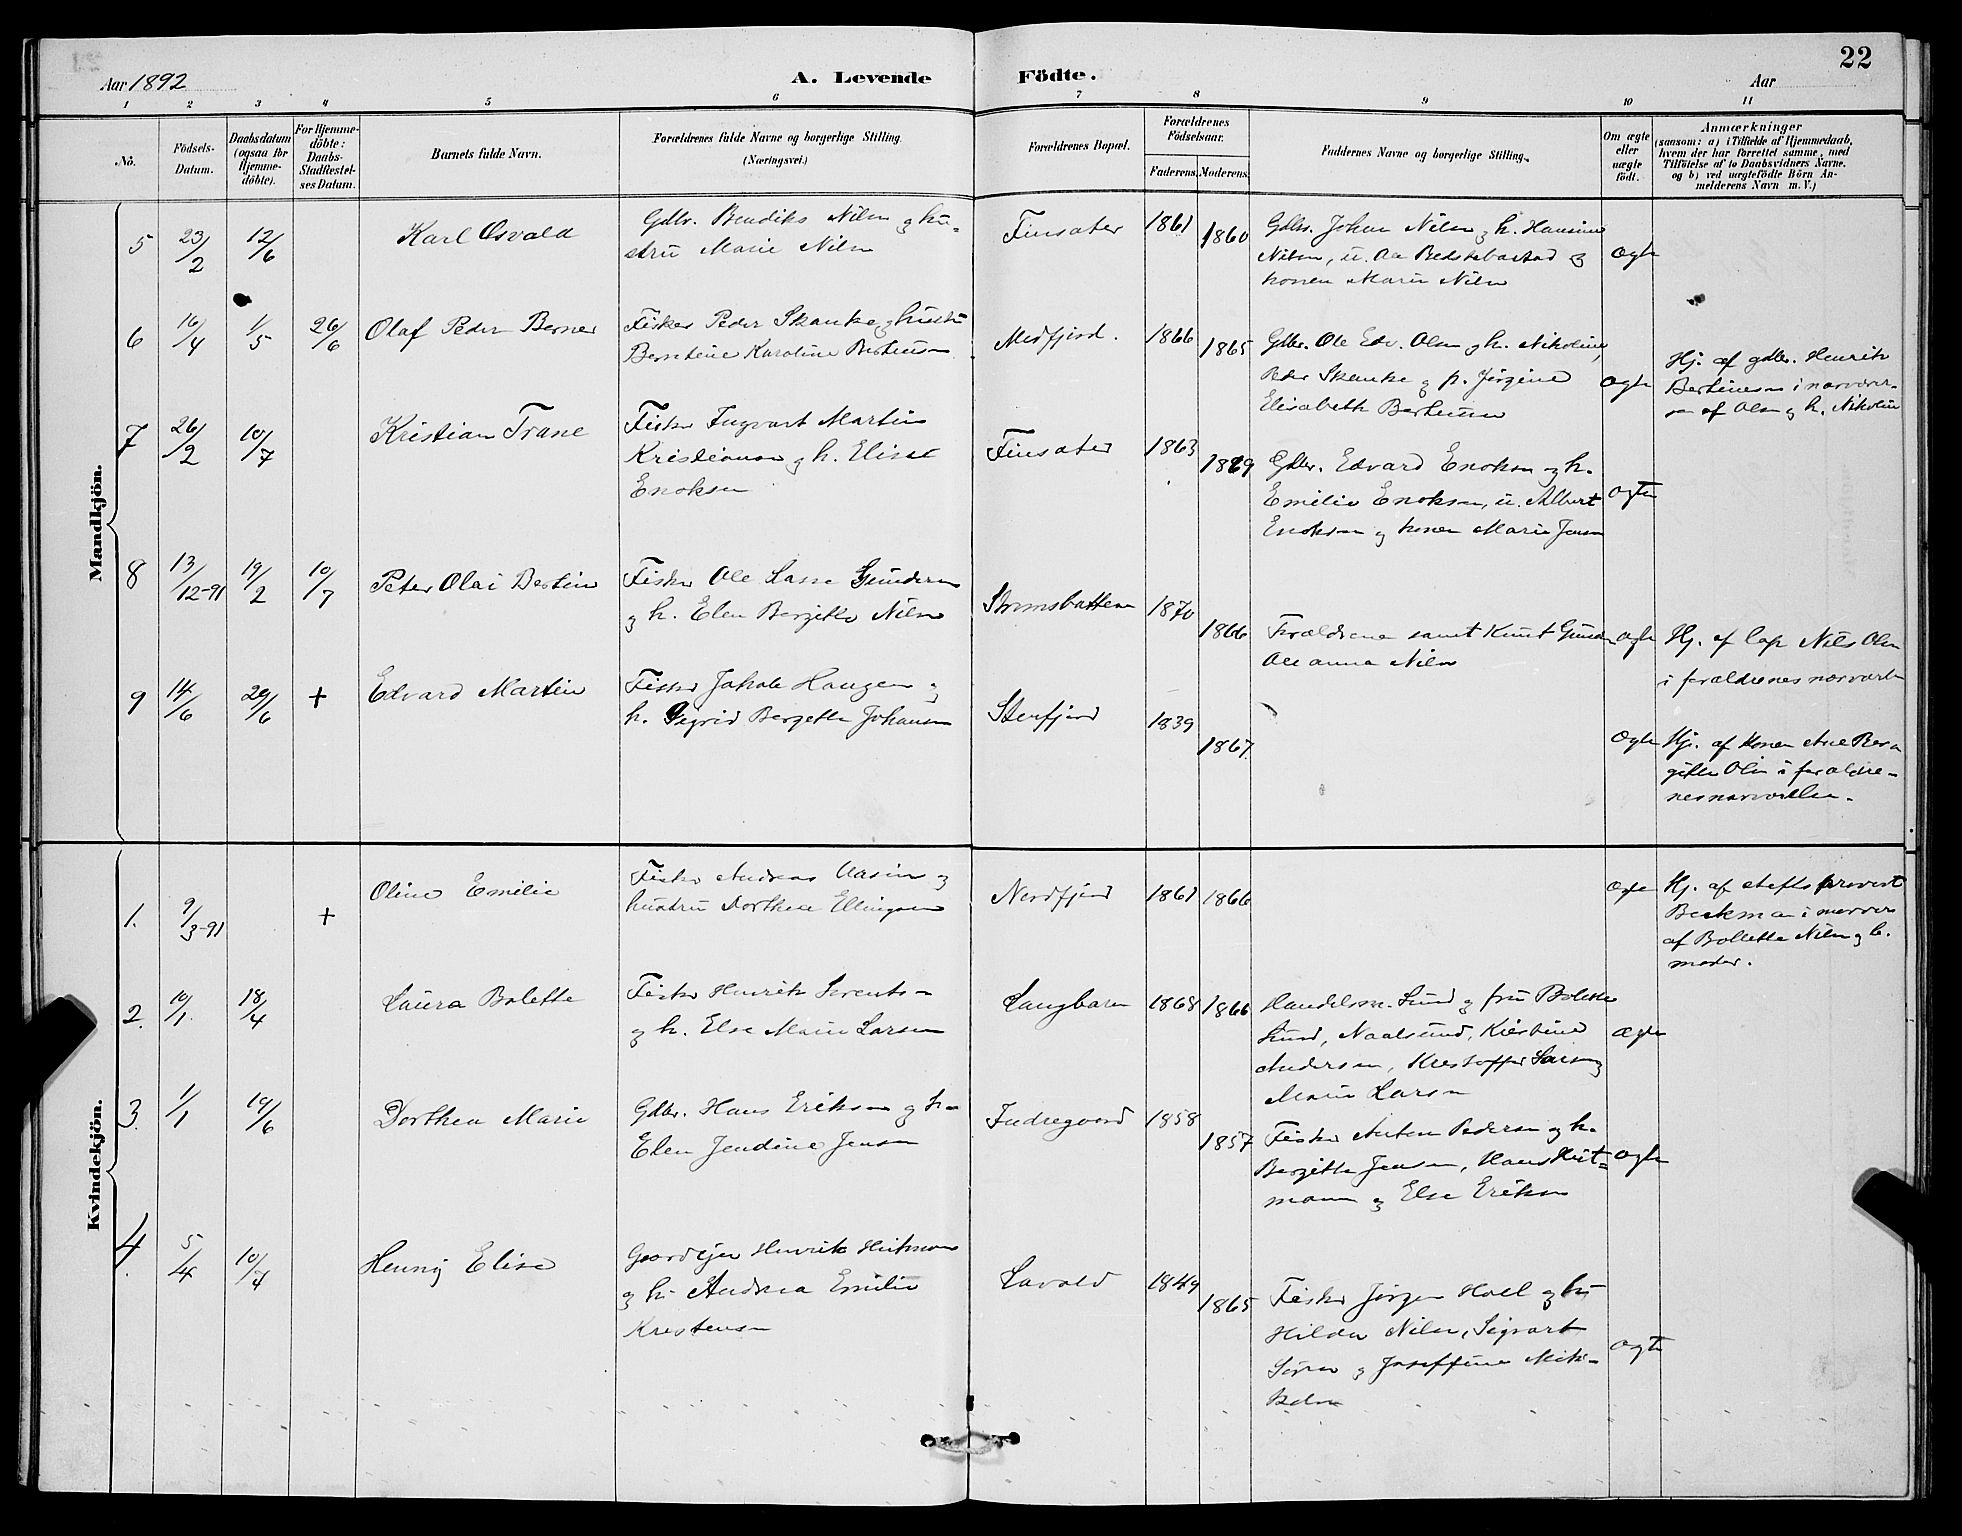 Aar 1892
A. Levende
Födte.
Aar
22
1 2 3 4 5 6 7 8 9 10 11
No.
Födsels-
Datum.
Daabsdatum
(ogsaa for
Hjemme-
döbte).
For Hjemme-
döbte:
Daabs-
Stadfestel-
ses Datum.
Barnets fulde Navn.
Forældrenes fulde Navne og borgerlige Stilling.
(Næringsvei.)
Forældrenes Bopæl.
Forældrenes
Födselsaar.
Faderens. Moderens.
Faddernes Navne og borgerlige Stilling.
Om ægte
eller
uægte
født.
Anmærkninger
(saasom: a) i Tilfælde af Hjemmedaab,
hvem der har forrettet samme, med
Tilföielse af to Daabsvidners Navne,
og b) ved uægtefödte Börn An-
melderens Navn m. V.)
Mandkjön.
5 23/2 12/6
Karl Osvald
Gdbr. Bendiks Nilsn og hu-
stru Marie Nilsn
Finsæter
1861 1860
Gdbr. Johan Nilsn og h. Hansine
Nilsn, u. Aa
konen Marie Nilsn
Ægte
6 16/4 1/5 26/6
Olaf Peder Berner
Fisker Peder Skanke og hustru
Berntine Karoline Bertheusn
Medfjord.
1866 1865
Gdbr. Ole Edv. Olsn og h. Nikoline,
Peder Skanke og p. Jørgine
Elisabeth Bertheusn
Ægte
Hj. af gdbr. Henrik
i nærvær-
se af Olsn og h. Nikoline
7 26/2 10/7
Kristian Trane
Fisker Ingvart Martin
Kristiansn og h. Elise
Enoksn
Finsæter
1863 1869
Gdbr. Edvard Enoksn og h.
Emilie Enoksn, u. Albert
Enoksn og konen Marie Jensn
Ægte
8 13/12-91 19/2 10/7
Peter Olai Bertin
Fisker Ole Lasse Gundersn
og h. Elen Bergitte Nilsn
Strømsbotten
1870 1866
Forældrene samt Knut
Ole Anna Nilsn
Ægte
Hj. af Lap Nils Olsn
i forældrenes nærværelse
9 14/6 29/6 +
Edvard Martin
Fisker Jakob Haugen og
h. Sigrid Bergette Johansn
Stenfjord
1839 1867.
Ægte
Hj. af konen Ane Ber-
gitte Olsn i forældre-
nes nærværelse.
Kvindekjön.
1. 9/3-91 +
Oline Emilie
Fisker Andreas og
hustru Dorthea Ellingsen
Nordfjord
1861 1866
Ægte
Hj. af
Beckman i nærvær
af Bollette Nilsn og b.
moder.
2. 10/1. 18/4
Laura Bolette
Fisker Henrik Lorents-
og h. Else Marie Larsn
Langbaren
1868 1866
Handelsm. Lund og fru Bolette
Lund, Naalsund, Kirstine
Andersn, Kristoffer Larsn og
Marie Larsn
Ægte
3. 1/1 19/6
Dorthea Marie
Gdbr. Hans Eriksn og h-
Elen Jendine Jensn
Indregaard
1858 1857
Fisker Anton Pedersn og h.
Bergitte Jensn, Hans Heit-
mann og Else Eriksn
Ægte
4. 5/4 10/7
Henny Elise
Gaardejer Henrik Heitmann
og h. Andrea Emilie
Kristensn
Lavold
1849 1865
Fisker Jørgen Hoel og hu
Hilda Nilsn, Sigvart
og Joseffine Mik-
kelsn
Ægte